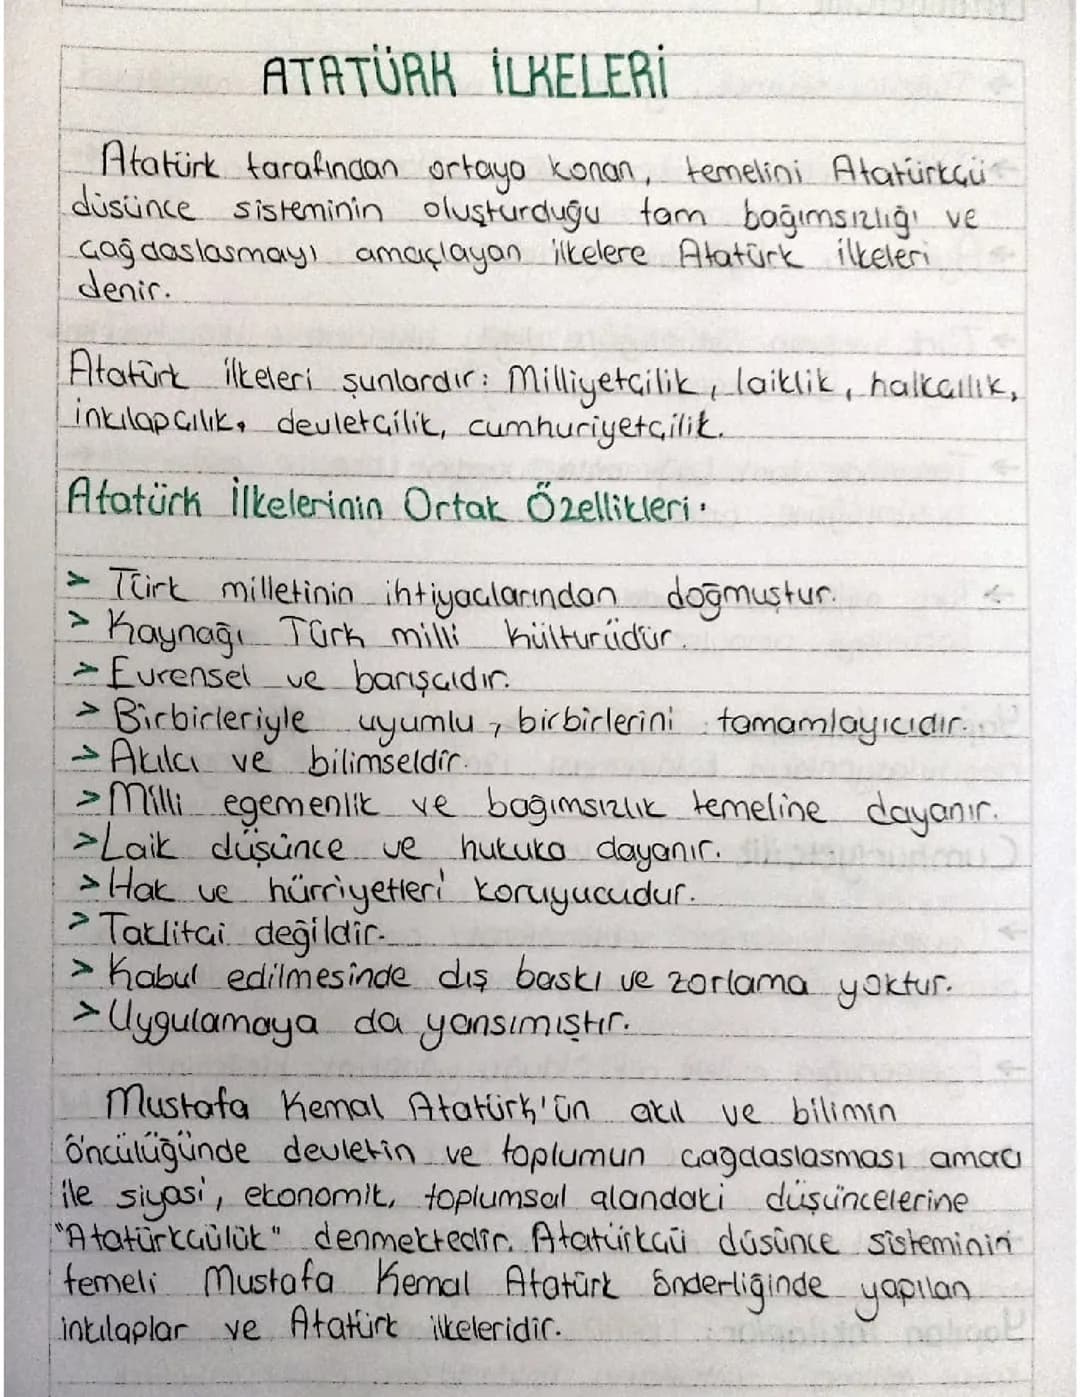 ATATÜRK İLKELERİ
Atatürk tarafından ortaya konan, temelini Atatürkçü
düşünce sisteminin oluşturduğu tam bağımsızlığı ve
çağdaşlaşmayı amaçlayan ilkelere Atatürk ilkeleri
denir.
Atatürk ilkeleri şunlardır: Milliyetçilik, laiklik, halkçılık,
inkılapçılık, devletçilik, cumhuriyetçilik.
Atatürk İlkelerinin Ortak Özellikleri.
> Türk milletinin ihtiyaçlarından doğmuştur.
> Kaynağı Türk milli kültürüdür.
> Evrensel ve barışçıdır.
> Birbirleriyle uyumlu, birbirlerini tamamlayıcıdır.
> Akılcı ve bilimseldir.
> Milli egemenlik ve bağımsızlık temeline dayanır.
> Laik düşünce ve hukuka dayanır.
> Hak ve hürriyetleri koruyucudur.
> Taklitçi değildir.
> Kabul edilmesinde dış baskı ve zorlama yoktur.
> Uygulamaya da yansımıştır.
Mustafa Kemal Atatürk'ün akıl ve bilimin
öncülüğünde devletin ve toplumun çağdaşlaşması amacı
ile siyasi, ekonomik, toplumsal alandaki düşüncelerine
"Atatürkçülük" denmektedir. Atatürkçü düşünce sisteminin
temeli Mustafa Kemal Atatürk önderliğinde yapılan
inkılaplar ve Atatürk ilkeleridir.